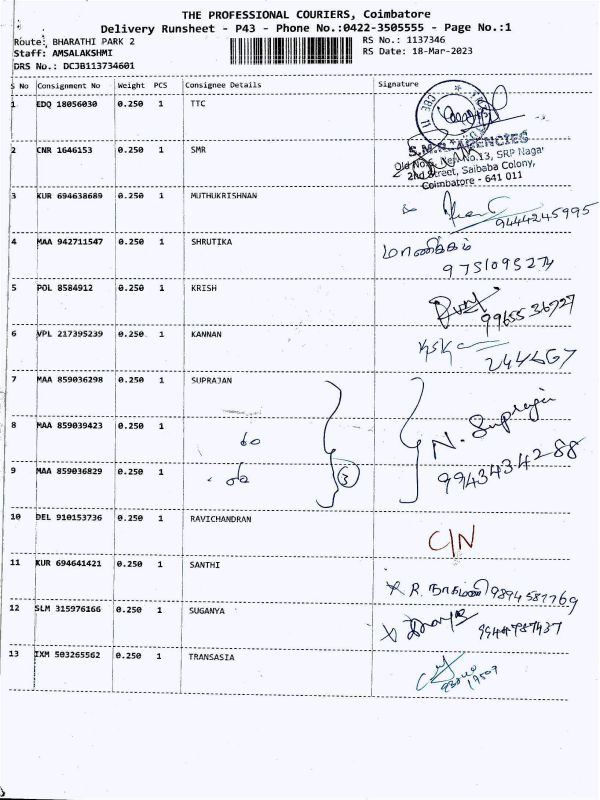 THE PROFESSIONAL COURIERS, Coimbatore
Delivery Runsheet - P43 - Phone No.:0422-3505555 - Page No.:1
Route: BHARATHI PARK 2
RS No.: 1137346
Staff: AMSALAKSHMI
RS Date: 18-Mar-2023
DRS No.: DCJB113734601
S No Consignment No Weight PCS Consignee Details Signature
1 EDQ 18056030 0.250 1 TTC
2 CNR 1646153 0.250 1 SMR
S.M.R. AGENCIES
Old No.6, New No.13, SRP Nagar
2nd Street, Saibaba Colony,
Coimbatore - 641 011
3 KUR 694638689 0.250 1 MUTHUKRISHNAN
9444245995
4 MAA 942711547 0.250 1 SHRUTIKA மாணிக்கம்
9751095274
5 POL 8584912 0.250 1 KRISH
9965536927
6 VPL 217395239 0.250 1 KANNAN KSK
244667
7 MAA 859036298 0.250 1 SUPRAJAN
8 MAA 859039423 0.250 1 do N. Supraja
9 MAA 859036829 0.250 1 do 3 9943434288
10 DEL 910153736 0.250 1 RAVICHANDRAN C/N
11 KUR 694641421 0.250 1 SANTHI
X R. நாகமணி 9894581769
12 SLM 315976166 0.250 1 SUGANYA
X 9944787437
13 IXM 503265562 0.250 1 TRANSASIA